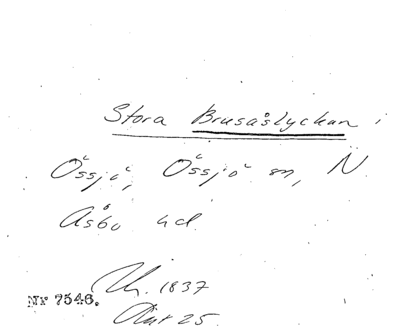 Stora Brusåslyckan i
Össjö, Össjö sn, N
Åsbo hd.
1837
Nr 7546.
25